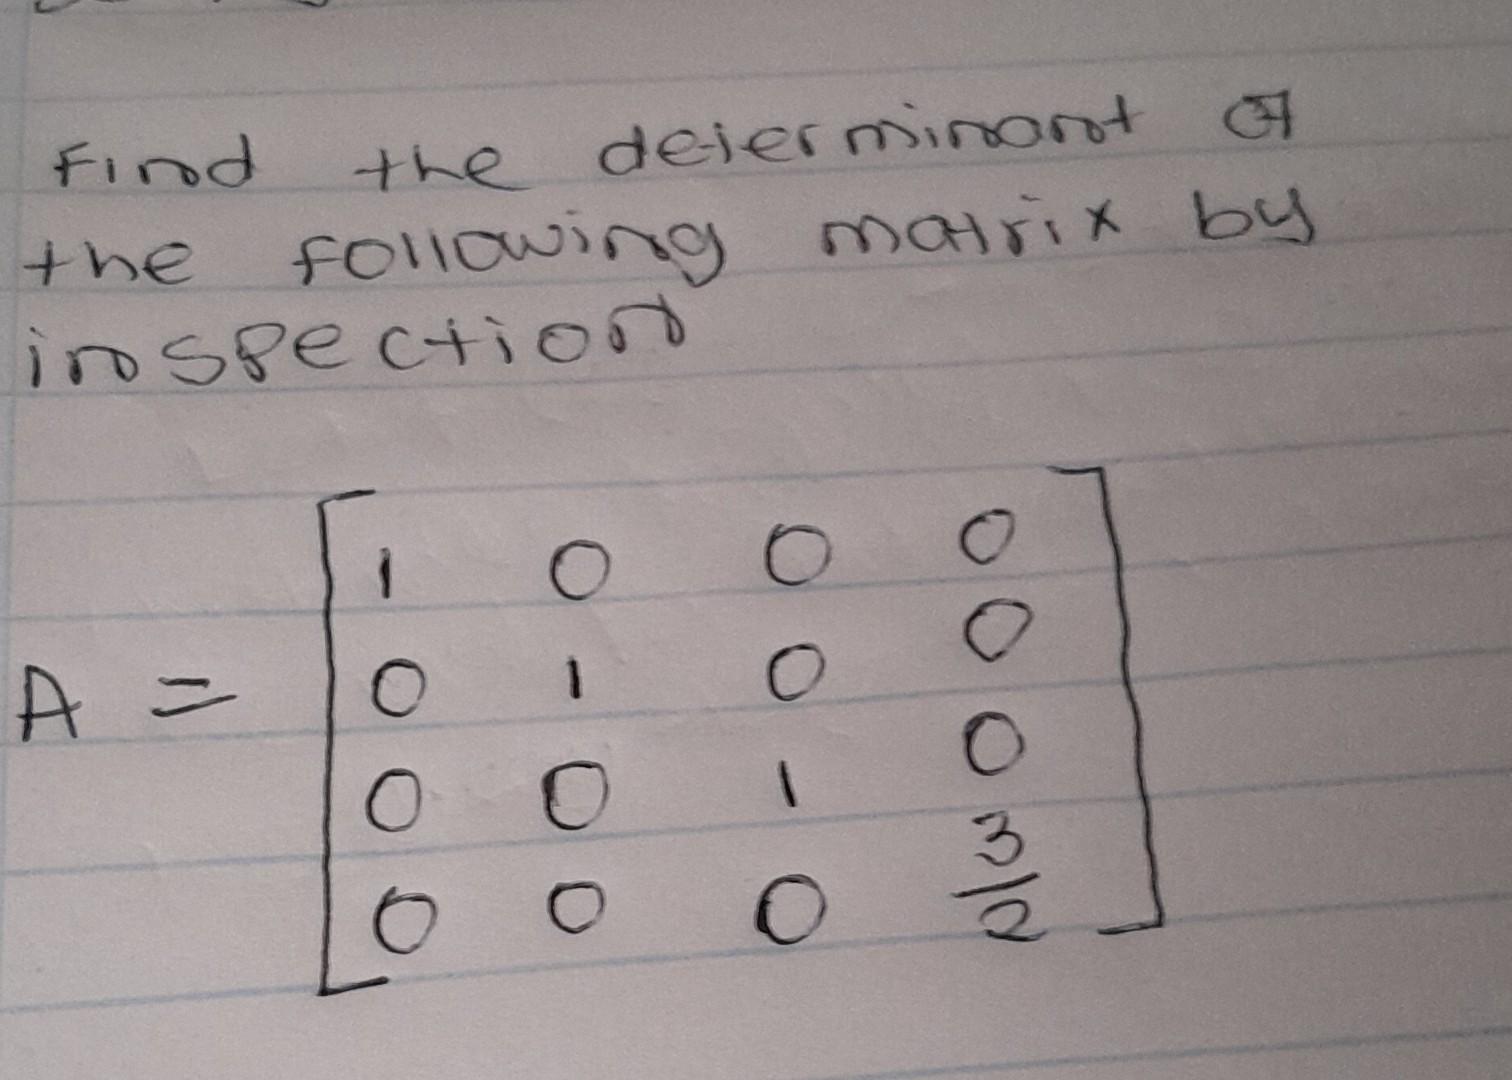 Find the determinant of
the following matrix by
inspection
A = [ 1 0 0 0
0 1 0 0
0 0 1 0
0 0 0 3/2 ]